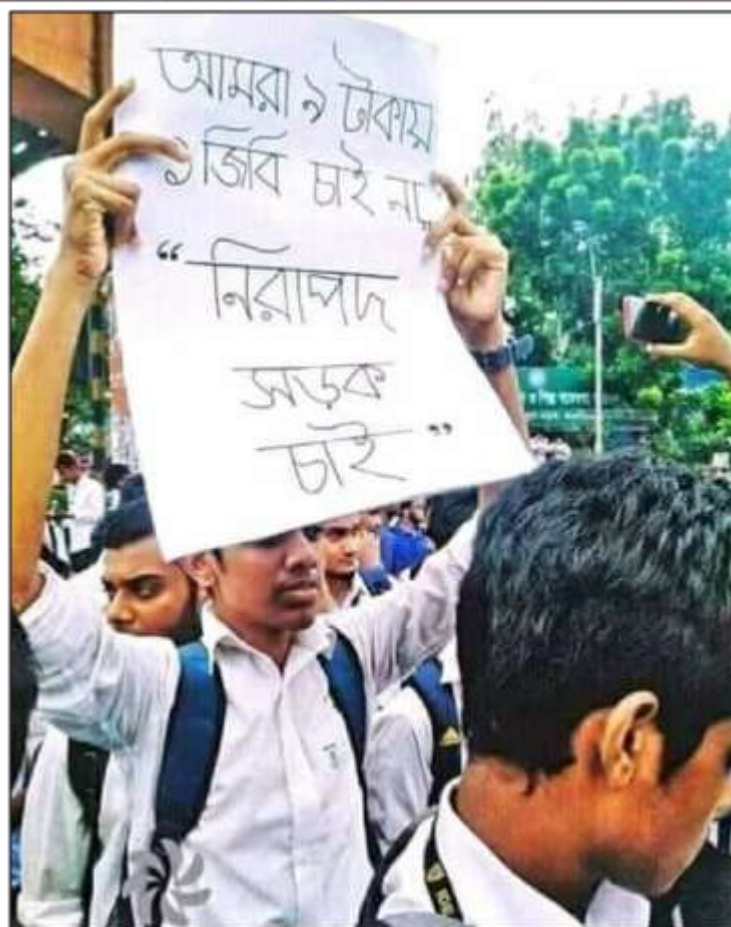 আমরা ৯ টাকায়
১ জিবি চাই নয়
“নিরাপদ
সড়ক
চাই”